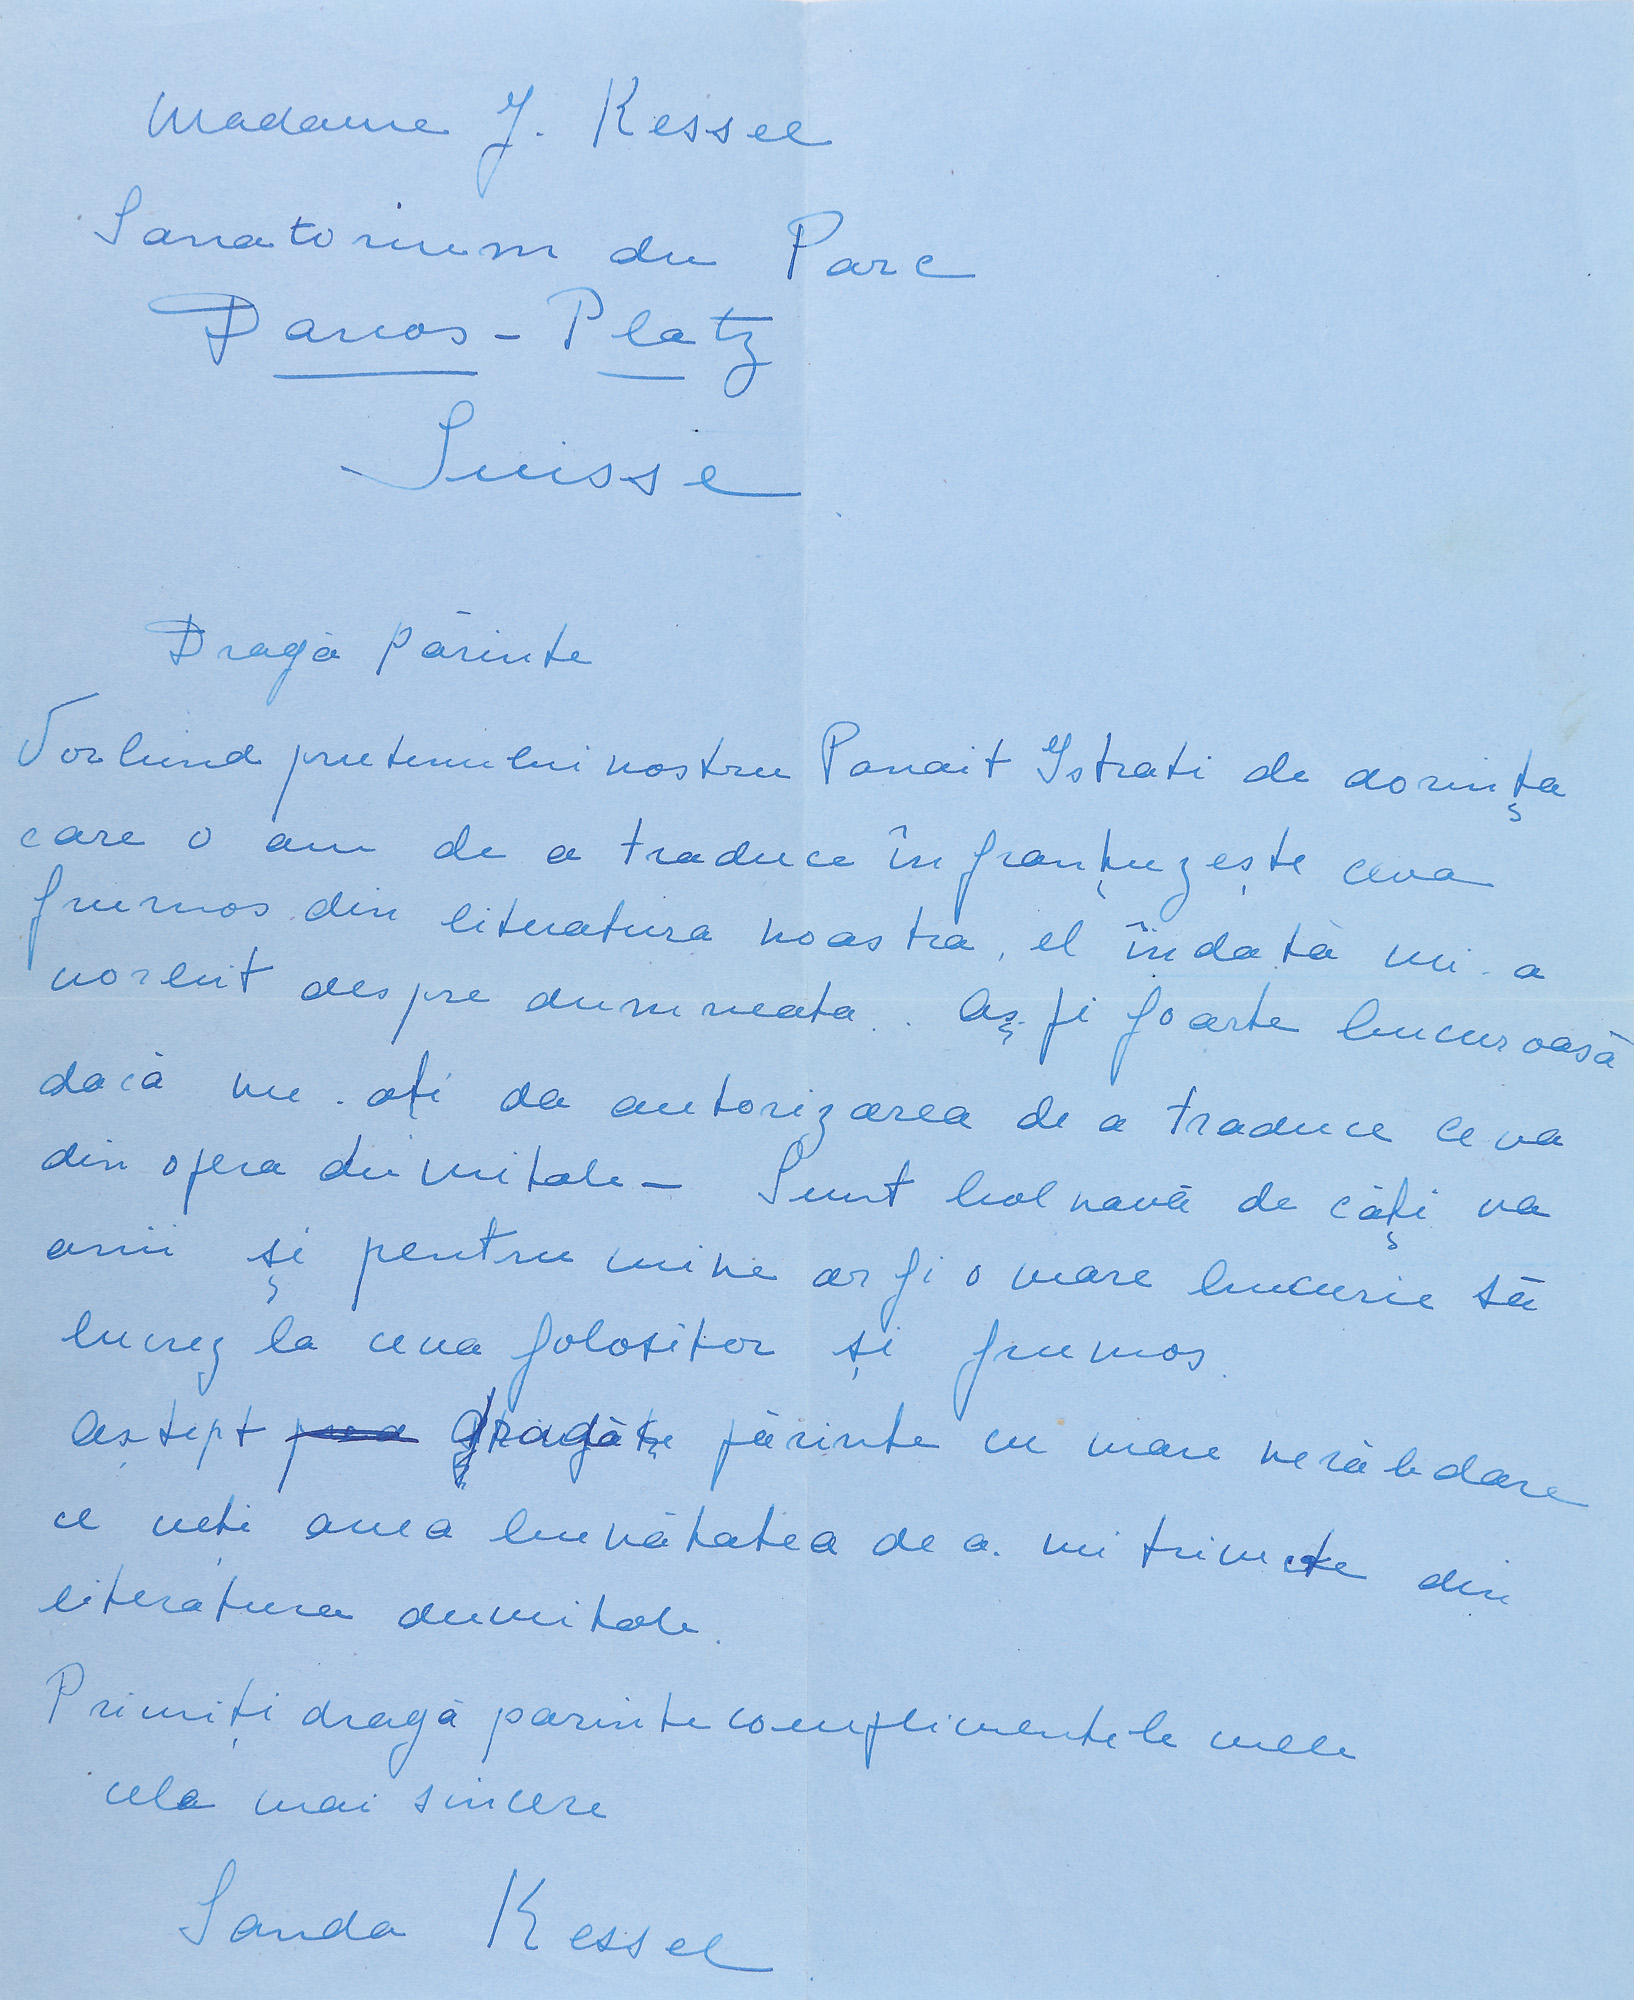 Madame J. Kessel
Sanatorium du Parc
Davos - Platz
Suisse
Dragă Părinte
Vorbind prietenului nostru Panait Istrati de dorința
care o am de a traduce în franțuzește ceva
frumos din literatura noastra, el îndată mi-a
vorbit despre dumneata.. Aș fi foarte bucuroasă
dacă ne-ați da autorizarea de a traduce ceva
din opera dumitale – Sunt bolnavă de câți va
anii și pentru mine ar fi o mare bucurie să
lucrez la ceva folositor și frumos.
Aștept dragă părinte cu mare nerăbdare
ce veți avea bunătatea de a-mi trimete din
literatura dumitale.
Primiți dragă parinte complimentele mele
cele mai sincere
Sanda Kessel